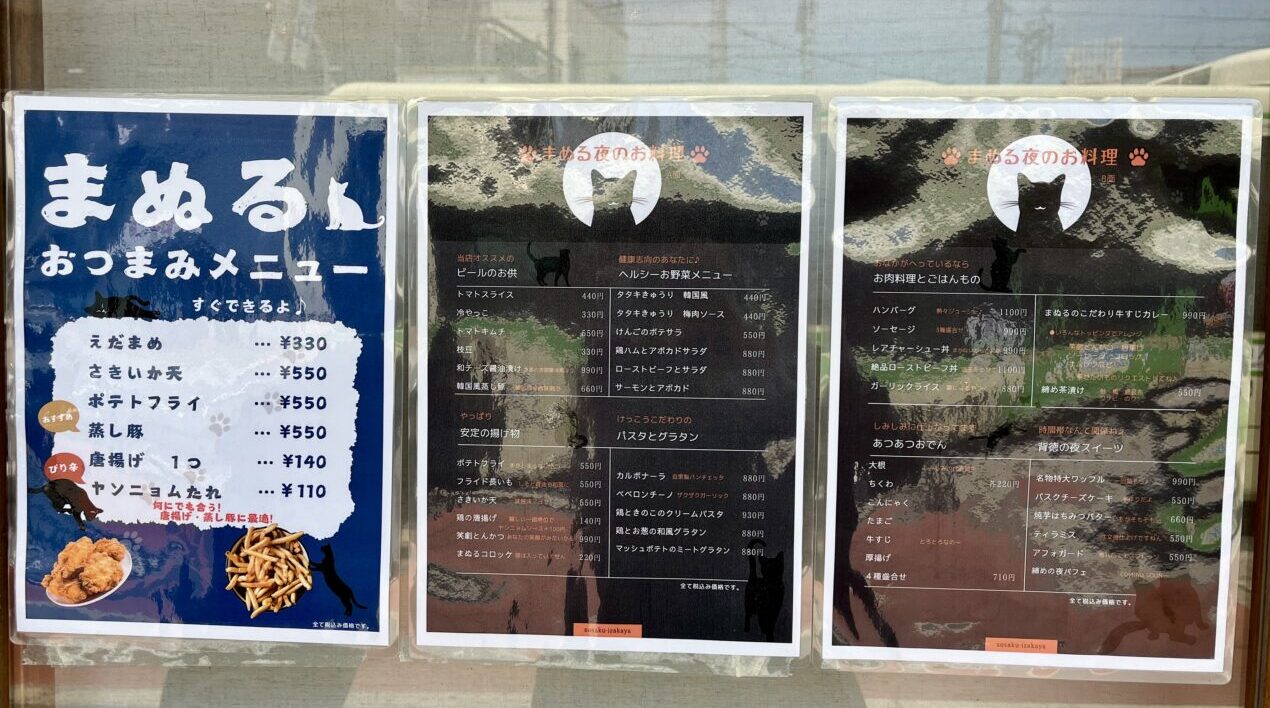 まぬる
おつまみメニュー
すぐできるよ♪
えだまめ … ¥330
さきいか天 … ¥550
ポテトフライ … ¥550
おすすめ
蒸し豚 … ¥550
ぴり辛
唐揚げ 1つ … ¥140
ヤンニョムたれ … ¥110
何にでも合う!
唐揚げ・蒸し豚に最適!
全て税込み価格です。
まぬる夜のお料理
当店オススメの
ビールのお供
トマトスライス 440円
冷やっこ 330円
トマトキムチ 550円
枝豆 330円
和チーズ醤油漬け 990円
韓国風蒸し豚 660円
健康志向のあなたに♪
ヘルシーお野菜メニュー
タタキきゅうり 韓国風 440円
タタキきゅうり 梅肉ソース 440円
けんごのポテサラ 550円
鶏ハムとアボカドサラダ 880円
ローストビーフとサラダ 880円
サーモンとアボカド 880円
やっぱり
安定の揚げ物
ポテトフライ 550円
フライド長いも 550円
さきいか天 550円
鶏の唐揚げ 140円
ヤンニョムソース+100円
笑劇とんかつ 990円
まぬるコロッケ 220円
けっこうこだわりの
パスタとグラタン
カルボナーラ 自家製パンチェッタ 880円
ペペロンチーノ ザクザクガーリック 880円
鶏ときのこのクリームパスタ 930円
鶏とお葱の和風グラタン 880円
マッシュポテトのミートグラタン 880円
全て税込み価格です。
sosaku-izakaya
まぬる夜のお料理
B面
おなかがへっているなら
お肉料理とごはんもの
ハンバーグ 1100円
ソーセージ 990円
レアチャーシュー丼 990円
絶品ローストビーフ丼 1100円
ガーリックライス 880円
まぬるのこだわり牛すじカレー 990円
締め茶漬け 550円
しみしみに仕上がってます
あつあつおでん
大根
ちくわ 220円
こんにゃく
たまご
牛すじ とろとろなの〜
厚揚げ
4種盛合せ 710円
時間帯なんて関係ねぇ
背徳の夜スイーツ
名物特大ワッフル 990円
バスクチーズケーキ 550円
焼芋はちみつバター 660円
ティラミス 550円
アフォガード 550円
締めの夜パフェ COMING SOON
全て税込み価格です。
sosaku-izakaya